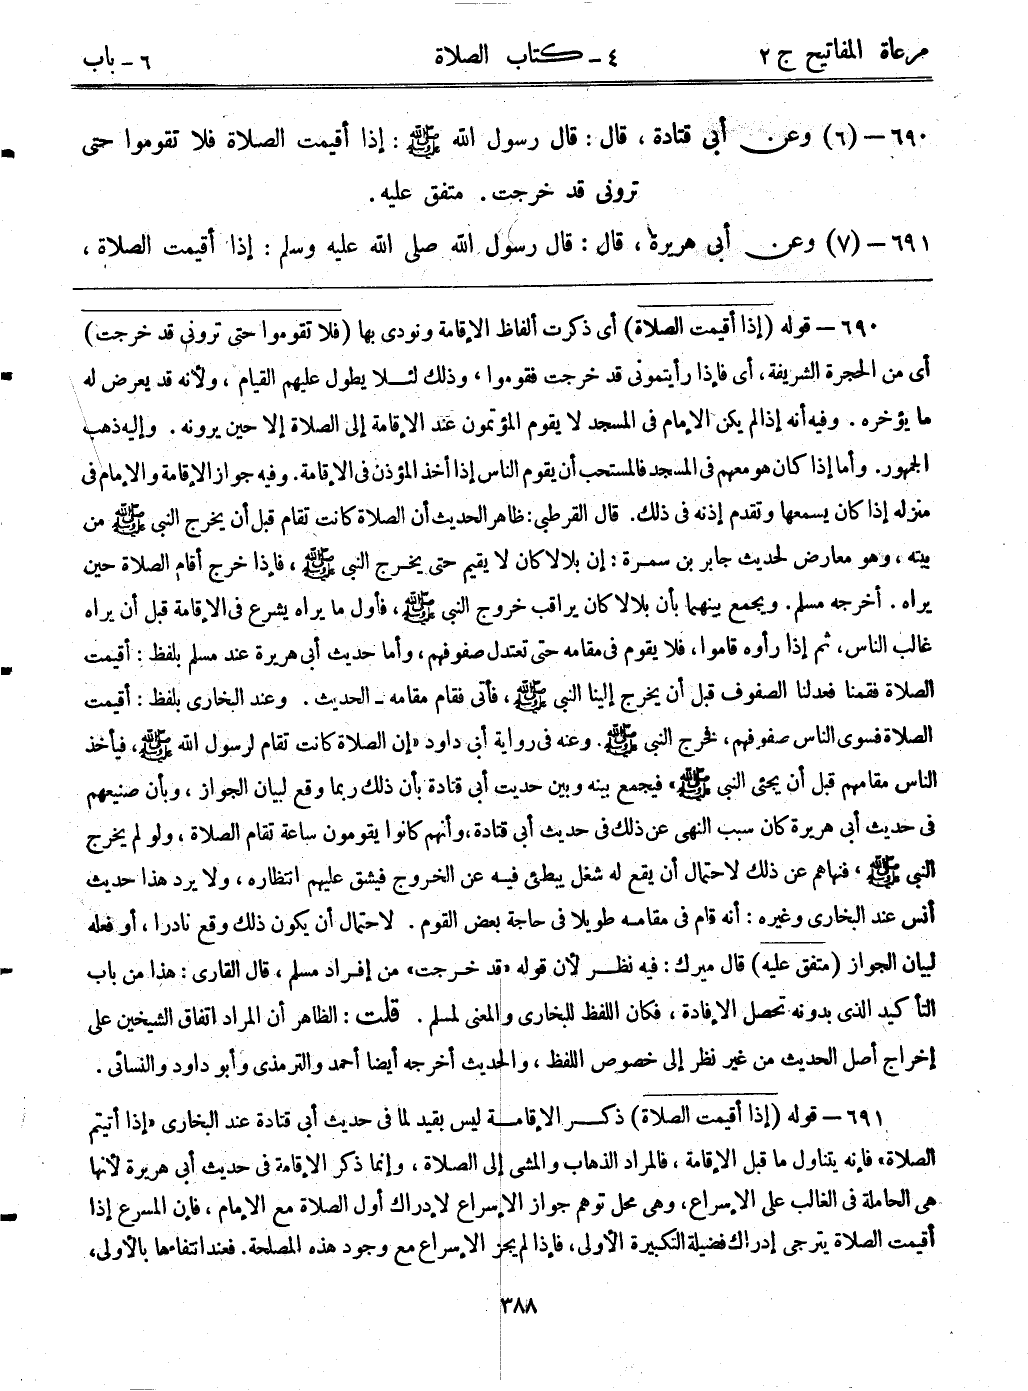 مرعاة المفاتيح ج ٢ ٤ ـ كتاب الصلاة ٦ ـ باب
٦٩٠ – (٦) وعن أبى قتادة ، قال : قال رسول الله ﷺ : إذا أقيمت الصلاة فلا تقوموا حتى
ترونى قد خرجت . متفق عليه .
٦٩١ – (٧) وعن أبى هريرة ، قال : قال رسول الله صلى الله عليه وسلم : إذا أقيمت الصلاة ،
٦٩٠ – قوله (إذا أقيمت الصلاة) أى ذكرت ألفاظ الإقامة ونودى بها (فلا تقوموا حتى ترونى قد خرجت)
أى من الحجرة الشريفة ، أى فإذا رأيتمونى قد خرجت فقوموا ، وذلك لئلا يطول عليهم القيام ، ولأنه قد يعرض له
ما يؤخره . وفيه أنه إذا لم يكن الإمام فى المسجد لا يقوم المؤتمون عند الإقامة إلى الصلاة إلا حين يرونه . وإليه ذهب
الجمهور . وأما إذا كان هو معهم فى المسجد فالمستحب أن يقوم الناس إذا أخذ المؤذن فى الإقامة . وفيه جواز الإقامة والإمام فى
منزله إذا كان يسمعها وتقدم إذنه فى ذلك . قال القرطبى : ظاهر الحديث أن الصلاة كانت تقام قبل أن يخرج النبى ﷺ من
بيته ، وهو معارض لحديث جابر بن سمرة : إن بلالا كان لا يقيم حتى يخرج النبى ﷺ ، فإذا خرج أقام الصلاة حين
يراه . أخرجه مسلم . ويجمع بينهما بأن بلالا كان يراقب خروج النبى ﷺ ، فأول ما يراه يشرع فى الإقامة قبل أن يراه
غالب الناس ، ثم إذا رأوه قاموا ، فلا يقوم فى مقامه حتى تعتدل صفوفهم ، وأما حديث أبى هريرة عند مسلم بلفظ : أقيمت
الصلاة فقمنا فعدلنا الصفوف قبل أن يخرج إلينا النبى ﷺ ، فأتى فقام مقامه ـ الحديث . وعند البخارى بلفظ : أقيمت
الصلاة فسوى الناس صفوفهم ، فخرج النبى ﷺ . وعنه فى رواية أبى داود «إن الصلاة كانت تقام لرسول الله ﷺ ، فيأخذ
الناس مقامهم قبل أن يجئى النبى ﷺ» فيجمع بينه وبين حديث أبى قتادة بأن ذلك ربما وقع لبيان الجواز ، وبأن صنيعهم
فى حديث أبى هريرة كان سبب النهى عن ذلك فى حديث أبى قتادة ، وأنهم كانوا يقومون ساعة تقام الصلاة ، ولو لم يخرج
النبى ﷺ ، فنهاهم عن ذلك لاحتمال أن يقع له شغل يبطئى فيه عن الخروج فيشق عليهم انتظاره ، ولا يرد هذا حديث
أنس عند البخارى وغيره : أنه قام فى مقامه طويلا فى حاجة بعض القوم . لاحتمال أن يكون ذلك وقع نادرا ، أو فعله
لبيان الجواز (متفق عليه) قال ميرك : فيه نظر لأن قوله «قد خرجت» من إفراد مسلم ، قال القارى : هذا من باب
التأكيد الذى بدونه تحصل الإفادة ، فكان اللفظ للبخارى والمعنى لمسلم . قلت : الظاهر أن المراد اتفاق الشيخين على
إخراج أصل الحديث من غير نظر إلى خصوص اللفظ ، والحديث أخرجه أيضا أحمد والترمذى وأبو داود والنسائى .
٦٩١ – قوله (إذا أقيمت الصلاة) ذكر الإقامة ليس بقيد لما فى حديث أبى قتادة عند البخارى «إذا أتيتم
الصلاة» فإنه يتناول ما قبل الإقامة ، فالمراد الذهاب والمشى إلى الصلاة ، وإنما ذكر الإقامة فى حديث أبى هريرة لأنها
هى الحاملة فى الغالب على الإسراع ، وهى محل توهم جواز الإسراع لإدراك أول الصلاة مع الإمام ، فإن المسرع إذا
أقيمت الصلاة يترجى إدراك فضيلة التكبيرة الأولى ، فإذا لم يجز الإسراع مع وجود هذه المصلحة . فعند انتفاءها بالأولى ،
٣٨٨